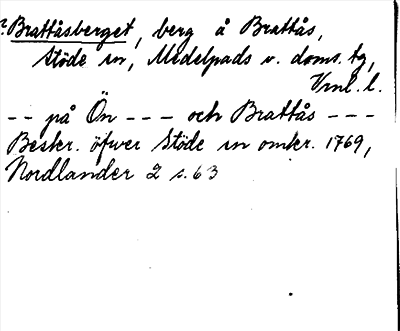 ? Brattåsberget, berg å Brattås,
Stöde sn, Medelpads v. doms. tg,
Vnl. l.
-- på Ön --- och Brattås ---
Beskr. öfver Stöde sn omkr. 1769,
Nordlander 2 s. 63